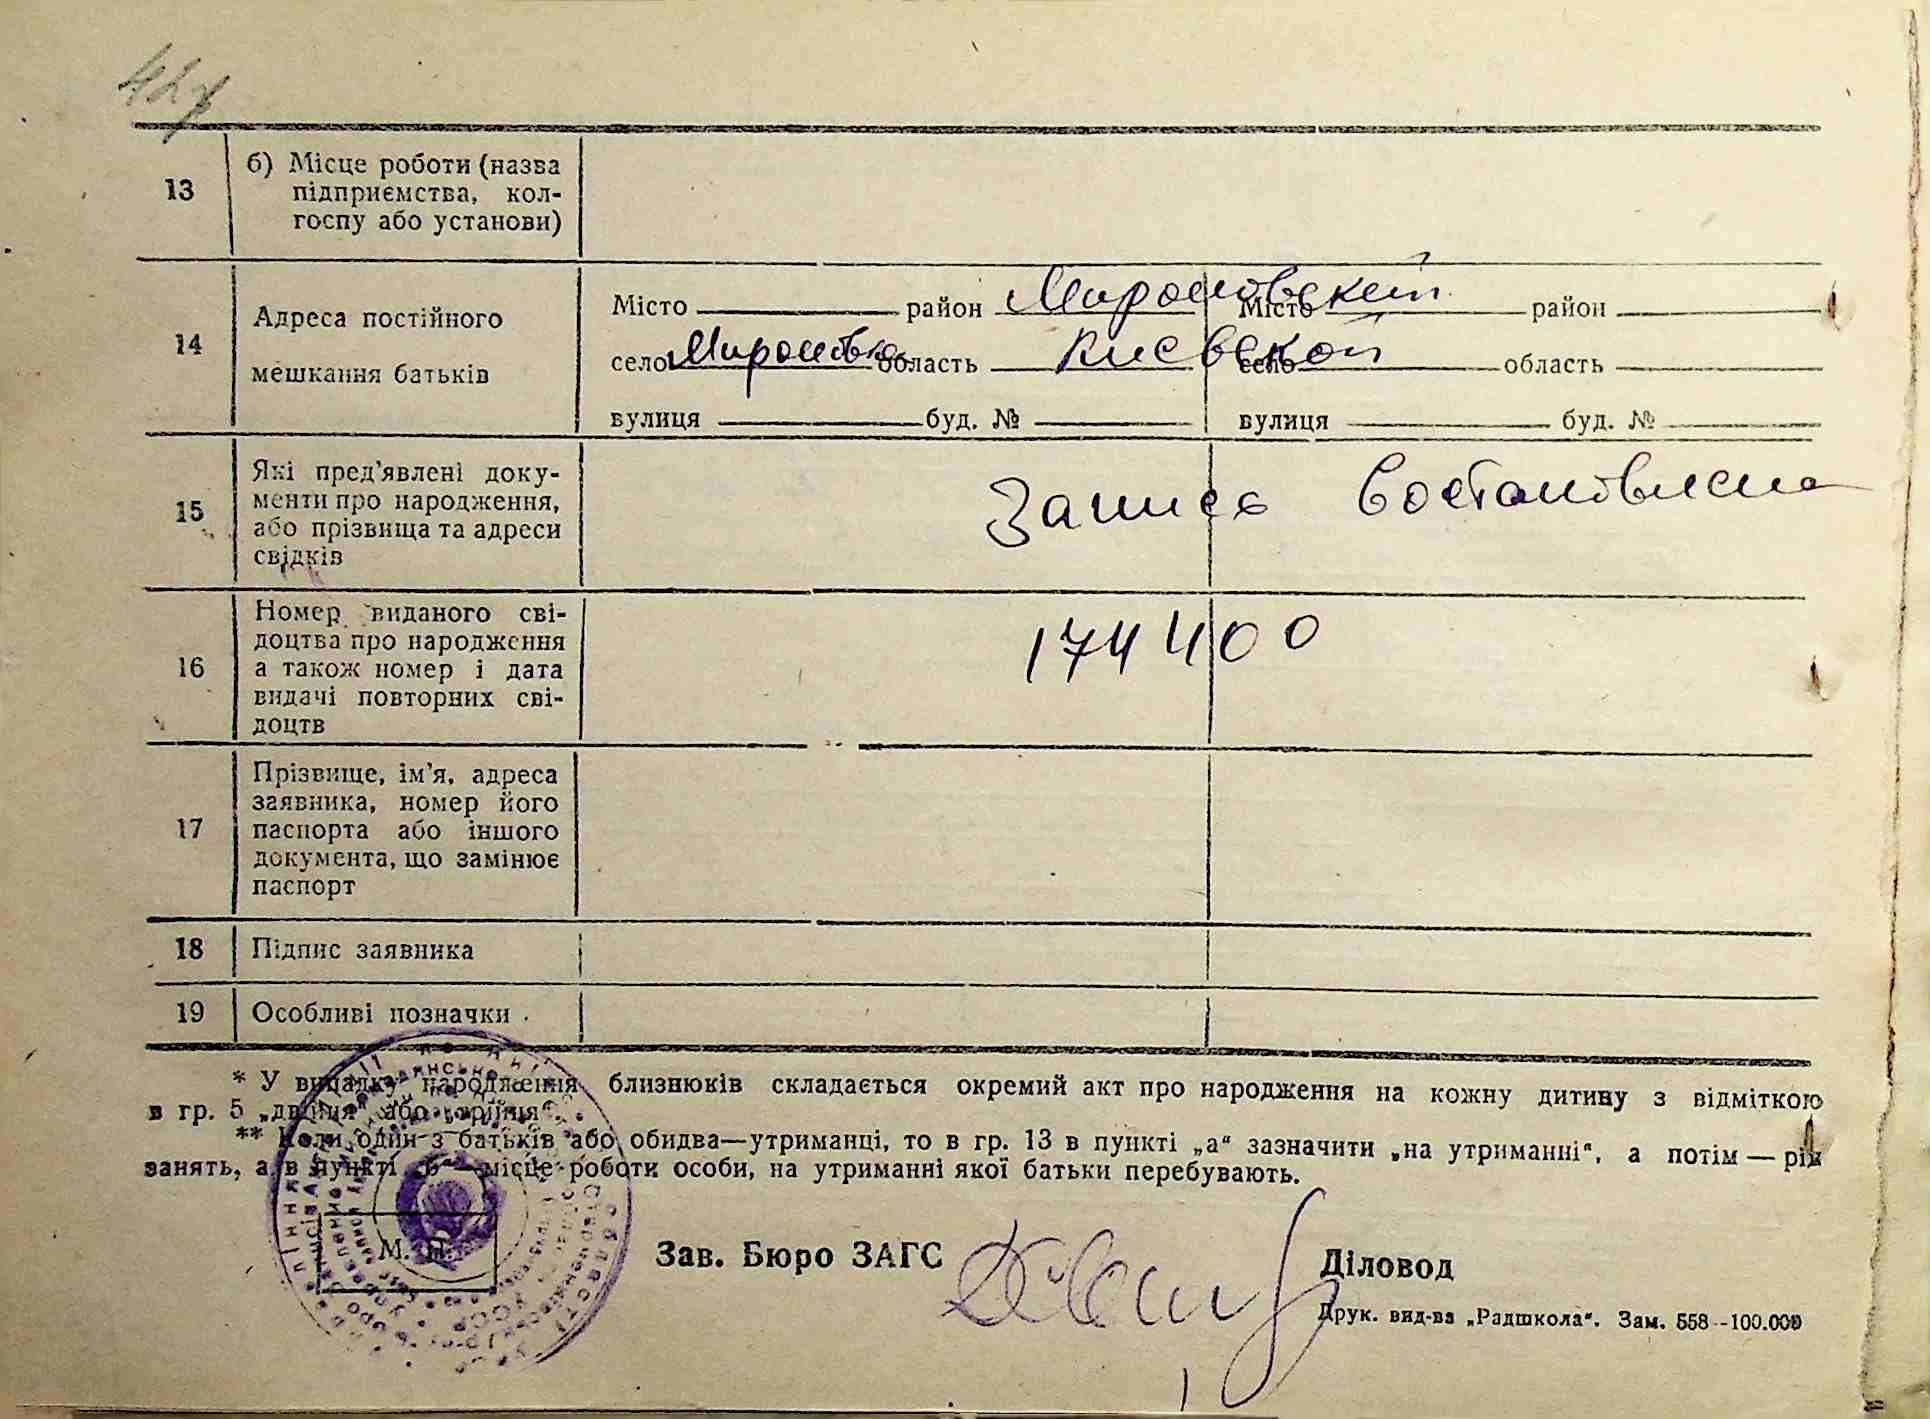 13 б) Місце роботи (назва
підприємства, кол-
госпу або установи)
14 Адреса постійного
мешкання батьків
Місто район Мироновский Місто район
село Мироновка область Киевской село область
вулиця буд. № вулиця буд. №
15 Які пред'явлені доку-
менти про народження,
або прізвища та адреси
свідків
Запись Востановлена
16 Номер виданого сві-
доцтва про народження
а також номер і дата
видачі повторних сві-
доцтв
174400
17 Прізвище, ім'я, адреса
заявника, номер його
паспорта або іншого
документа, що замінює
паспорт
18 Підпис заявника
19 Особливі позначки
* У випадку народження близнюків складається окремий акт про народження на кожну дитину з відміткою
в гр. 5 „двійня“ або „трійня“.
** Коли один з батьків або обидва—утриманці, то в гр. 13 в пункті „а“ зазначити „на утриманні“, а потім — рід
занять, а в пункті „б“—місце роботи особи, на утриманні якої батьки перебувають.
М. П.
Зав. Бюро ЗАГС
Діловод
Друк. вид-ва „Радшкола“. Зам. 558--100.000